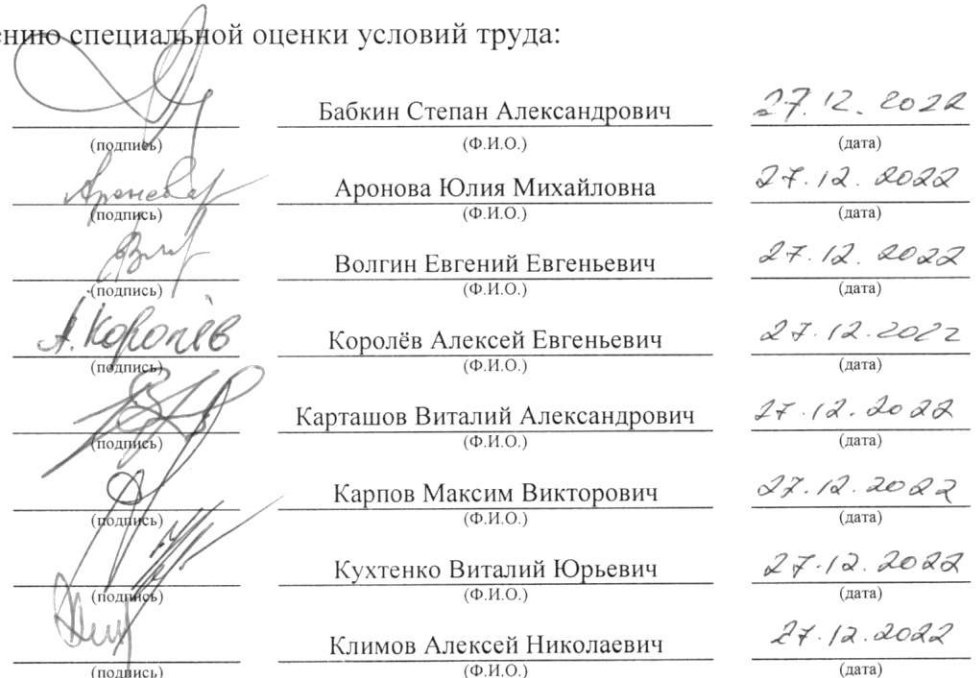 ению специальной оценки условий труда:
Бабкин Степан Александрович 27.12.2022
(подпись) (Ф.И.О.) (дата)
Аронова Юлия Михайловна 27.12.2022
(подпись) (Ф.И.О.) (дата)
Волгин Евгений Евгеньевич 27.12.2022
(подпись) (Ф.И.О.) (дата)
А. Королёв Королёв Алексей Евгеньевич 27.12.2022
(подпись) (Ф.И.О.) (дата)
Карташов Виталий Александрович 27.12.2022
(подпись) (Ф.И.О.) (дата)
Карпов Максим Викторович 27.12.2022
(подпись) (Ф.И.О.) (дата)
Кухтенко Виталий Юрьевич 27.12.2022
(подпись) (Ф.И.О.) (дата)
Климов Алексей Николаевич 27.12.2022
(подпись) (Ф.И.О.) (дата)